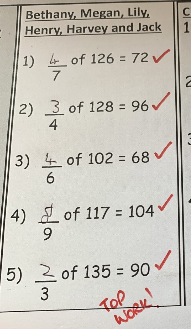 Bethany, Megan, Lily,
Henry, Harvey and Jack
1) 4/7 of 126 = 72 ✓
2) 3/4 of 128 = 96 ✓
3) 4/6 of 102 = 68 ✓
4) 8/9 of 117 = 104 ✓
5) 2/3 of 135 = 90 ✓
TOP
WORK!
C
1
2
3